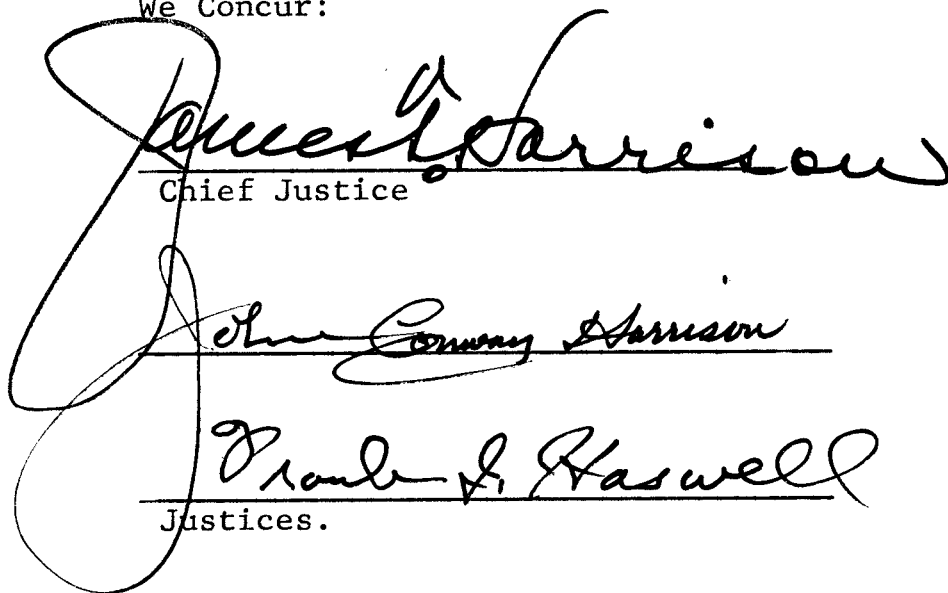 We Concur:
James T. Harrison
Chief Justice
John Conway Harrison
Frank I. Haswell
Justices.